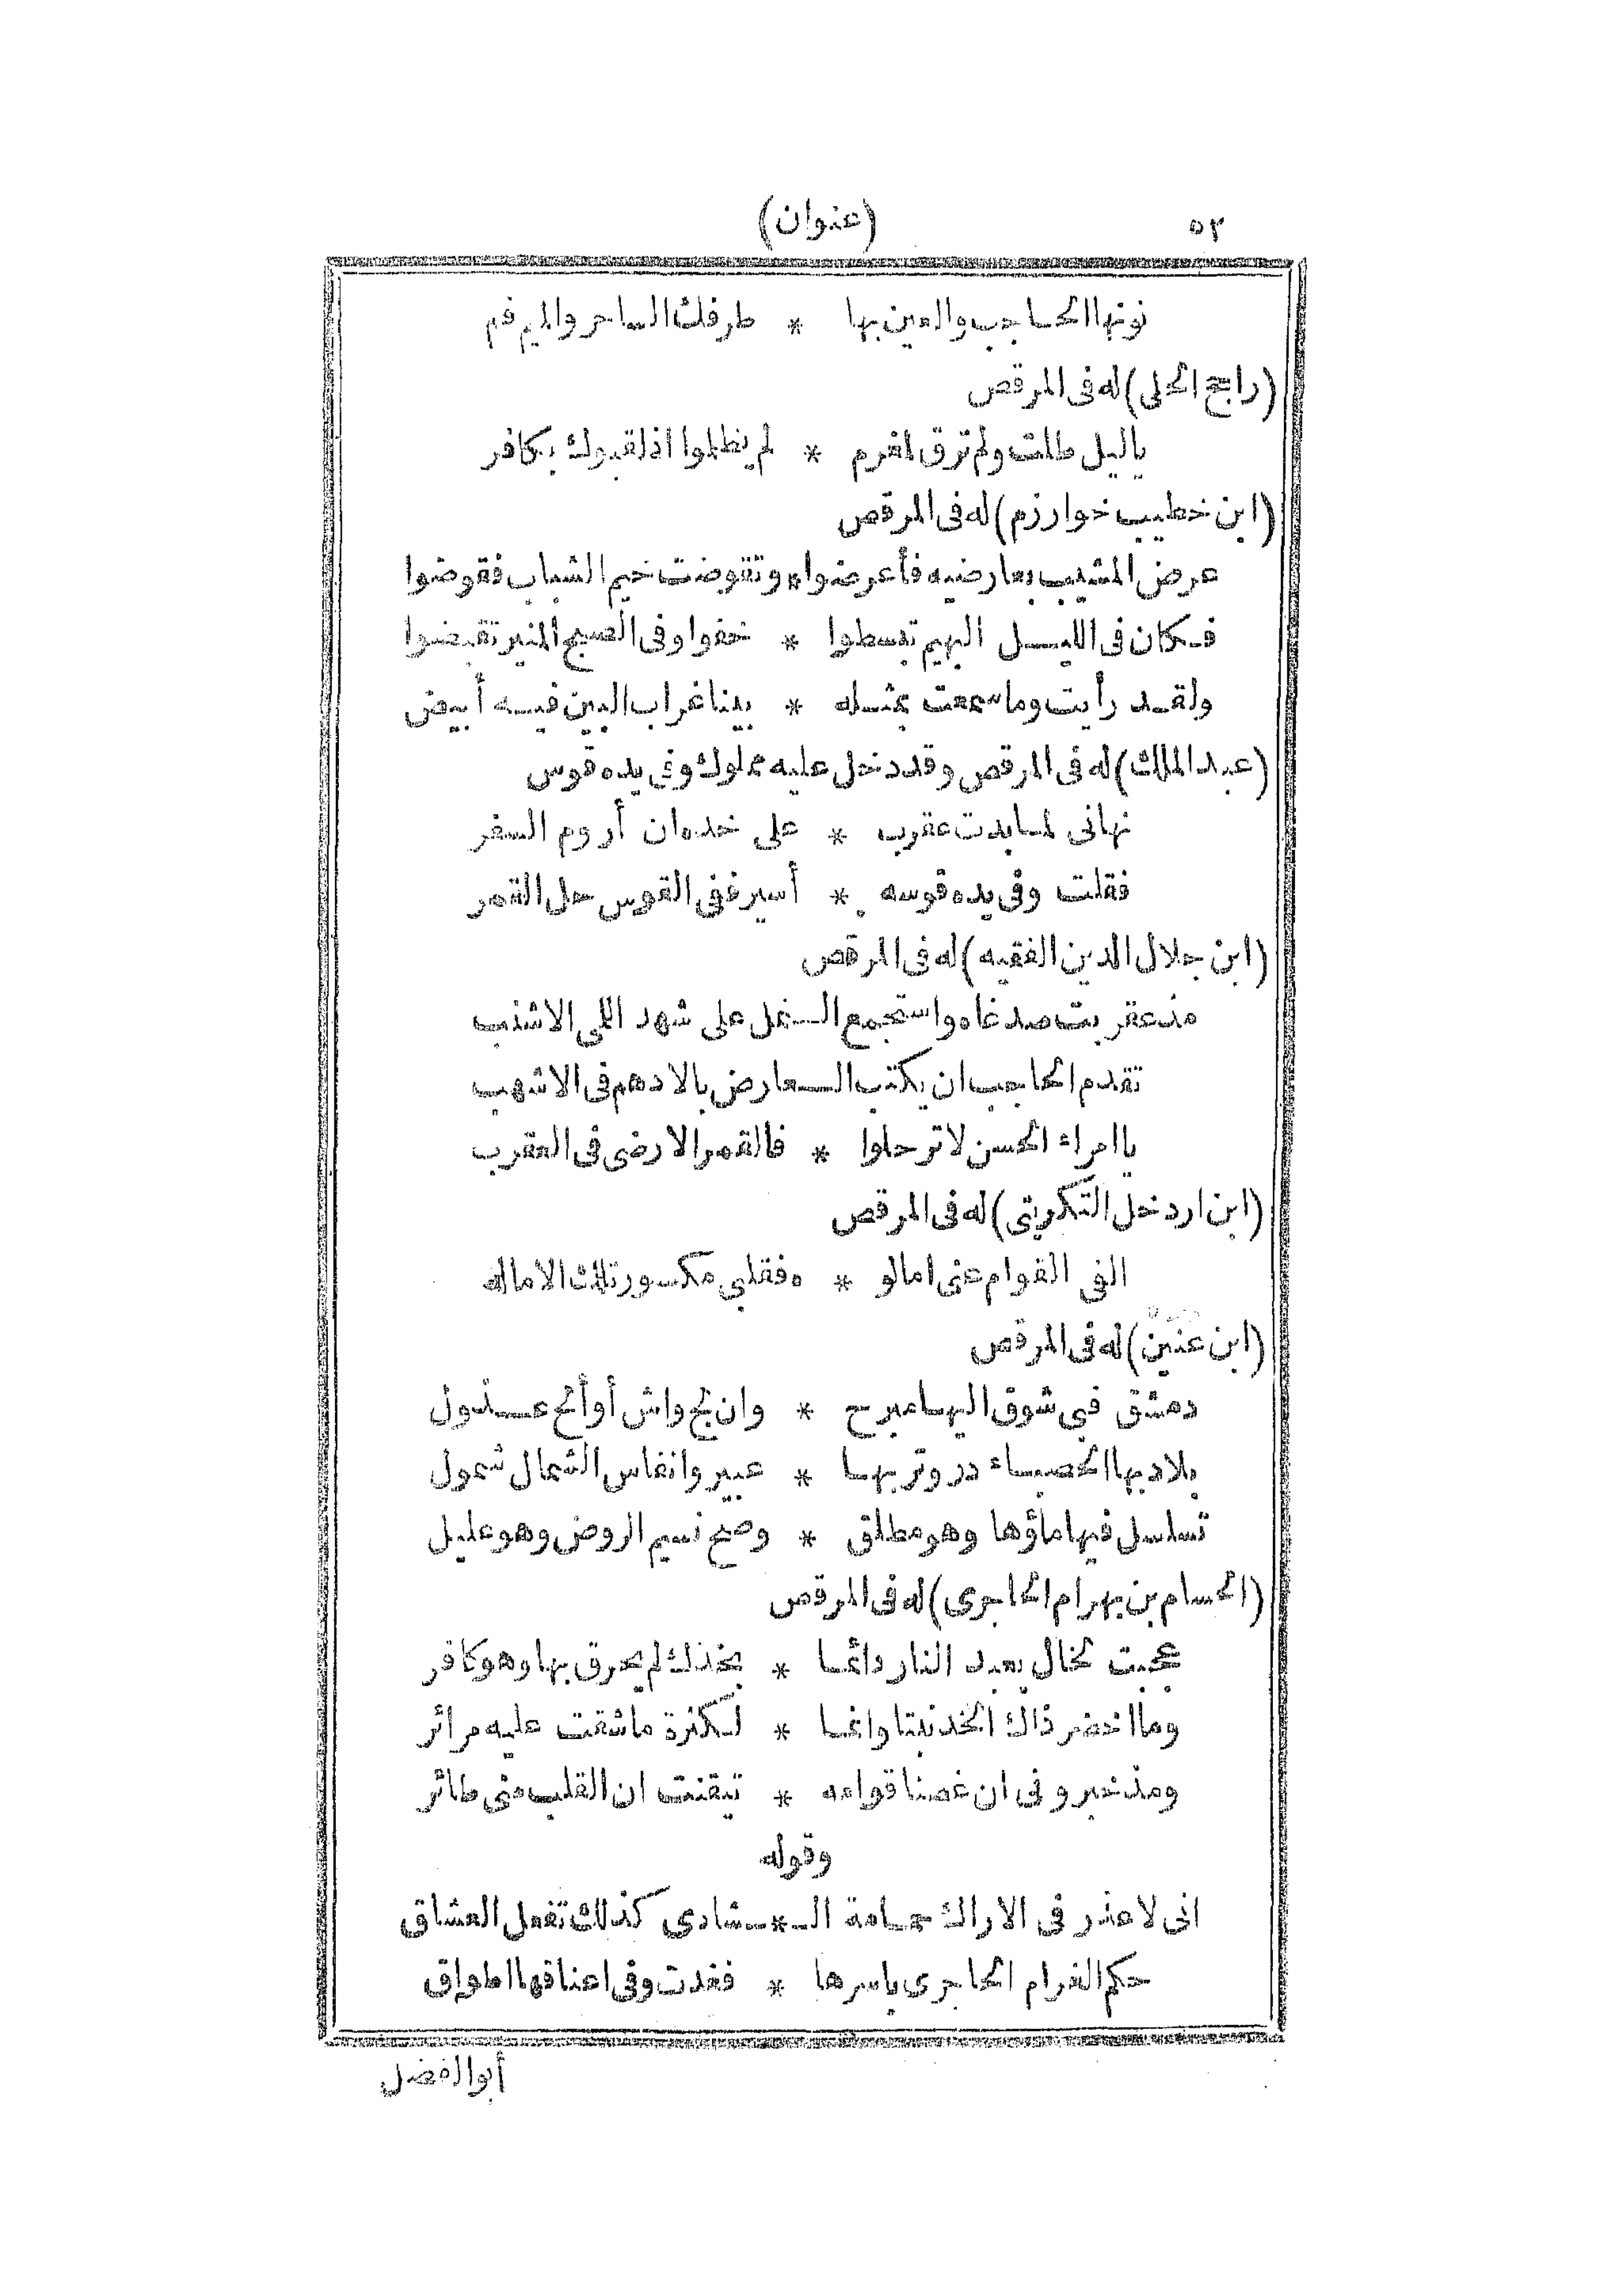 ٥٢ (عنوان)
نونها الحاجب والعين بها * طرفك الساحر والميم فم
(راجح الحلى) له فى المرقص
ياليل طلت ولم ترق لمغرم * لم يظلموا اذ لقبوك بكافر
(ابن خطيب خوارزم) له فى المرقص
عرض المشيب بعارضيه فأعرضوا * وتقوضت خيم الشباب فقوضوا
فكان فى الليل البهيم تبسطوا * خفوا وفى الصبح المنير تقبضوا
ولقد رأيت وما سمعت بمثله * بينا غراب البين فيه أبيض
(عبد الملك) له فى المرقص وقد دخل عليه مملوك وفى يده قوس
نهانى لما بدت عقرب * على خده ان أروم السفر
فقلت وفى يده قوسه * أسير ففى القوس حل القمر
(ابن جلال الدين الفقيه) له فى المرقص
مذ عقربت صدغاه واستجمع الــنمل على شهد اللمى الاشنب
تقدم الحاجب ان يكتب الــعارض بالادهم فى الاشهب
يا امراء الحسن لا ترحلوا * فالقمر الارضى فى العقرب
(ابن اردخل التكريتى) له فى المرقص
الفى القوام عنى امالو * ه فقلبى مكسور تلك الاماله
(ابن عنين) له فى المرقص
دمشق فبى شوق اليها مبرح * وان لج واش أو ألح عذول
بلاد بها الحصباء در وتربها * عبير وانفاس الشمال شمول
تسلسل فيها ماؤها وهو مطلق * وصح نسيم الروض وهو عليل
(الحسام بن بهرام الحاجرى) له فى المرقص
عجبت لخال يعبد النار دائما * بخدك لم يحرق بها وهو كافر
وما اخضر ذاك الخد نبتا وانما * لكثرة ما شقت عليه مرائر
ومذ خبرونى ان غصنا قوامه * تيقنت ان القلب منى طائر
وقوله
انى لاعذر فى الاراك حمامة الــ*ــشادى كذلك تفعل العشاق
حكم الغرام الحاجرى باسرها * فغدت وفى اعناقها اطواق
أبو الفضل